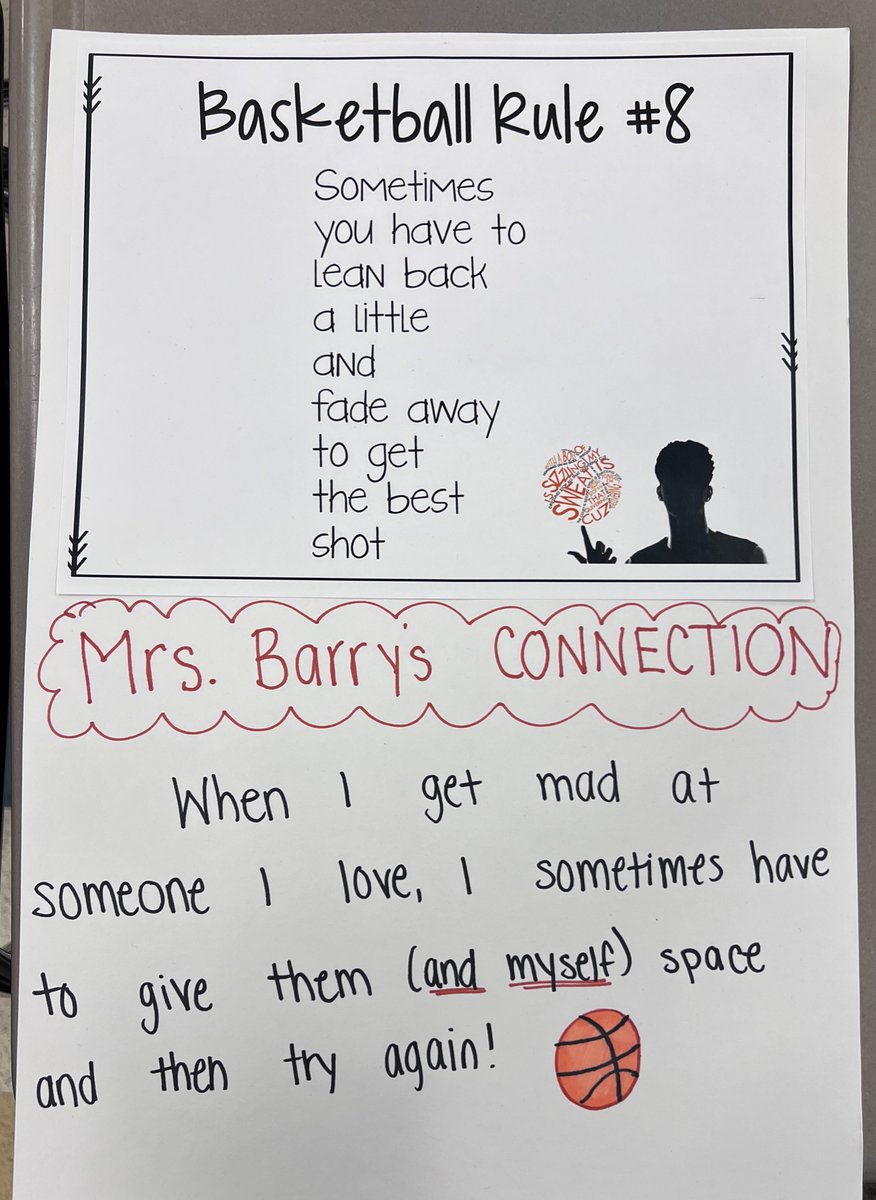 Basketball Rule #8
Sometimes
you have to
lean back
a little
and
fade away
to get
the best
shot
SIZZLING MY
SWEAT IS
THAT
CUZ
Mrs. Barry's CONNECTION
When I get mad at
someone I love, I sometimes have
to give them (and myself) space
and then try again!